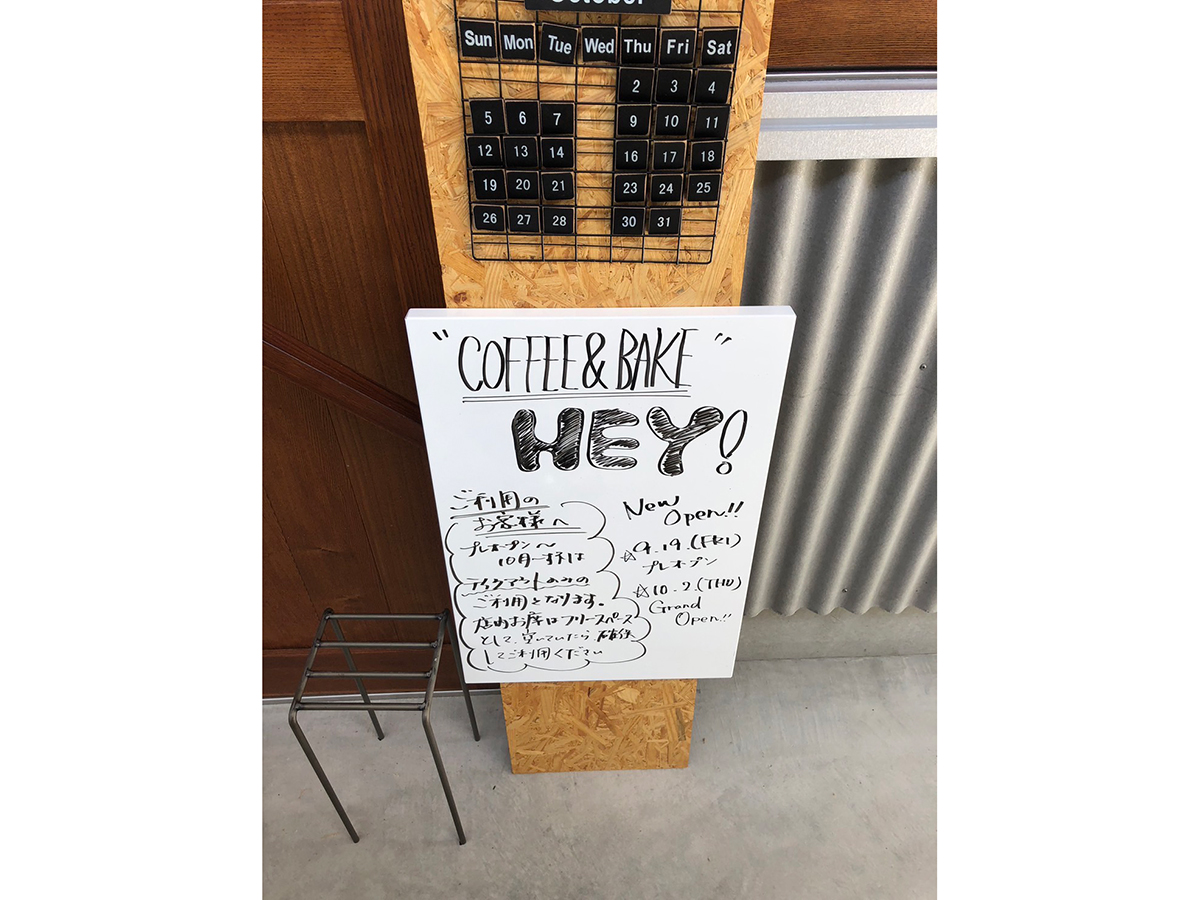 October
Sun Mon Tue Wed Thu Fri Sat
2 3 4
5 6 7 9 10 11
12 13 14 16 17 18
19 20 21 23 24 25
26 27 28 30 31
"COFFEE & BAKE"
HEY!
ご利用の
お客様へ
プレオープン〜
10月一杯は
テイクアウトのみの
ご利用となります。
店内お席はフリースペース
として、空いていたら確保
してご利用ください
New
Open!!
☆9.19.(FRI)
プレオープン
☆10.2.(THU)
Grand
Open!!